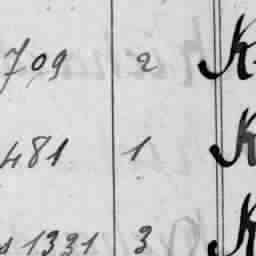 709 2 K
481 1 K
1331 3 K